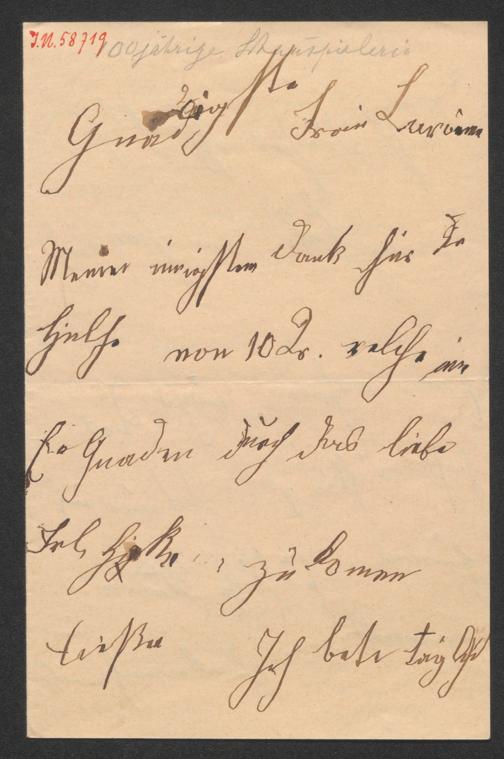 I.N. 58719
100jährige Schauspielerin
Gnädigste Frau Baronin
Meinen innigsten Dank für die
Hülfe von 10 Kr. welche mir
Eu Gnaden durch das liebe
Frl. zu komen
ließen Ich bete täglich